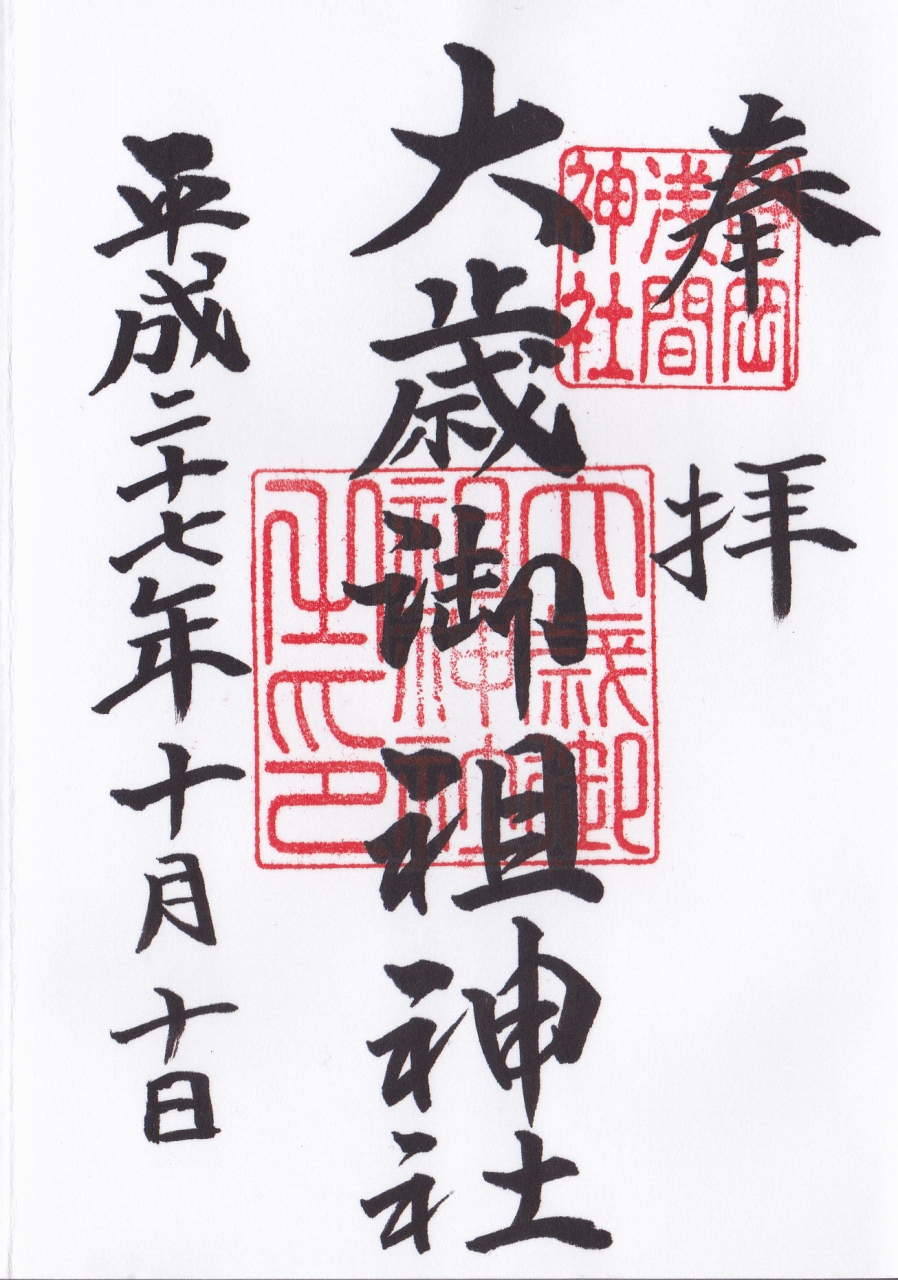 奉拝
静岡浅間神社
大歳御祖神社
大歳御祖神社之印
平成二十七年十月十日